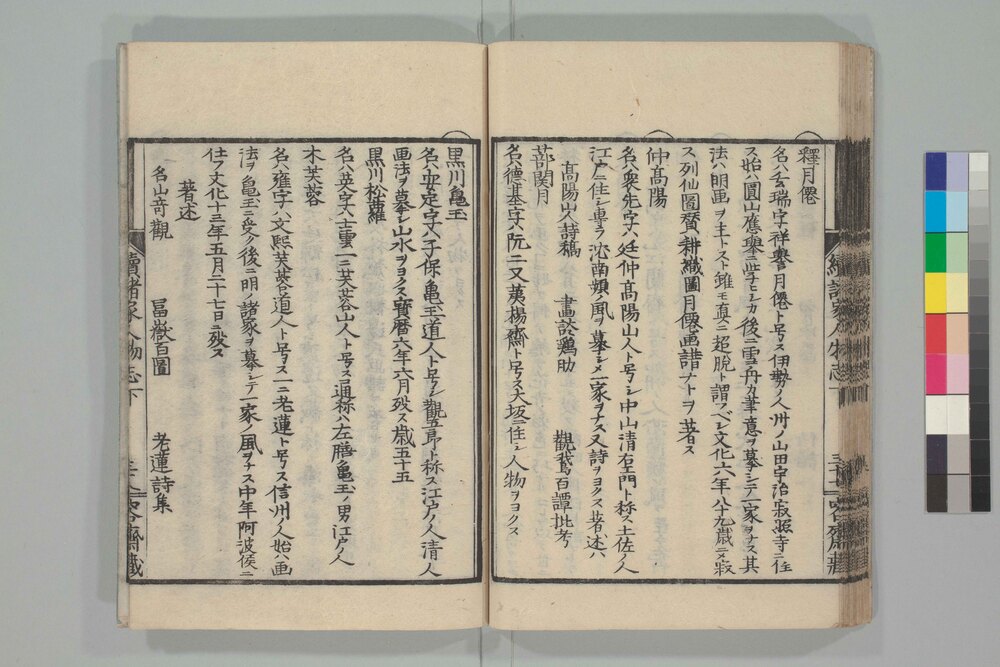 釋月僊
名ハ玄瑞字祥譽月僊ト号ス伊勢ノ人州ノ山田宇治寂照寺ニ住
ス始ハ圓山應擧ニ学ヒシカ後ニ雪舟カ筆意ヲ摹シテ一家ヲナス其
法ハ明画ヲ主トスト雖モ直ニ超脱ト謂フベシ文化六年八十九歳ニメ寂
ス列仙圖賛耕織圖月僊画譜ナトヲ著ス
仲髙陽
名ハ象先字ハ廷仲髙陽山人ト号シ中山清右エ門ト称ス土佐ノ人
江戸ニ住シ專ラ沈南蘋ノ風ヲ摹シメ一家ヲナス又詩ヲヨクス著述ハ
髙陽山人詩稿　畫談鶏肋　觀鵞百譚批考
蔀関月
名ハ德基字ハ　二又荑楊齋ト号ス大坂ニ住シ人物ヲヨクス
續諸家人物志下
黒川亀玉
名ハ安定字ハ子保亀玉道人ト号シ觀五郎ト称ス江戸ノ人清人
画法ヲ摹シ山水ヲヨクス寶暦六年六月殁ス歳五十五
黒川松蘿
名ハ英字ハ士雲一ニ芙蓉山人ト号ス通称ハ左膳亀玉ノ男江戸ノ人
木芙蓉
名ハ雍字ハ文熙芙蓉道人ト号ス一ニ老蓮ト号ス信州ノ人始ハ画
法ヲ亀玉ニ受ケ後ニ明ノ諸家ヲ摹シテ一家ノ風ヲナス中年阿波侯ニ
仕フ文化十三年五月二十七日ニ殁ス
著述
名山竒觀　冨嶽百圖　老蓮詩集
續諸家人物志下
齋藏